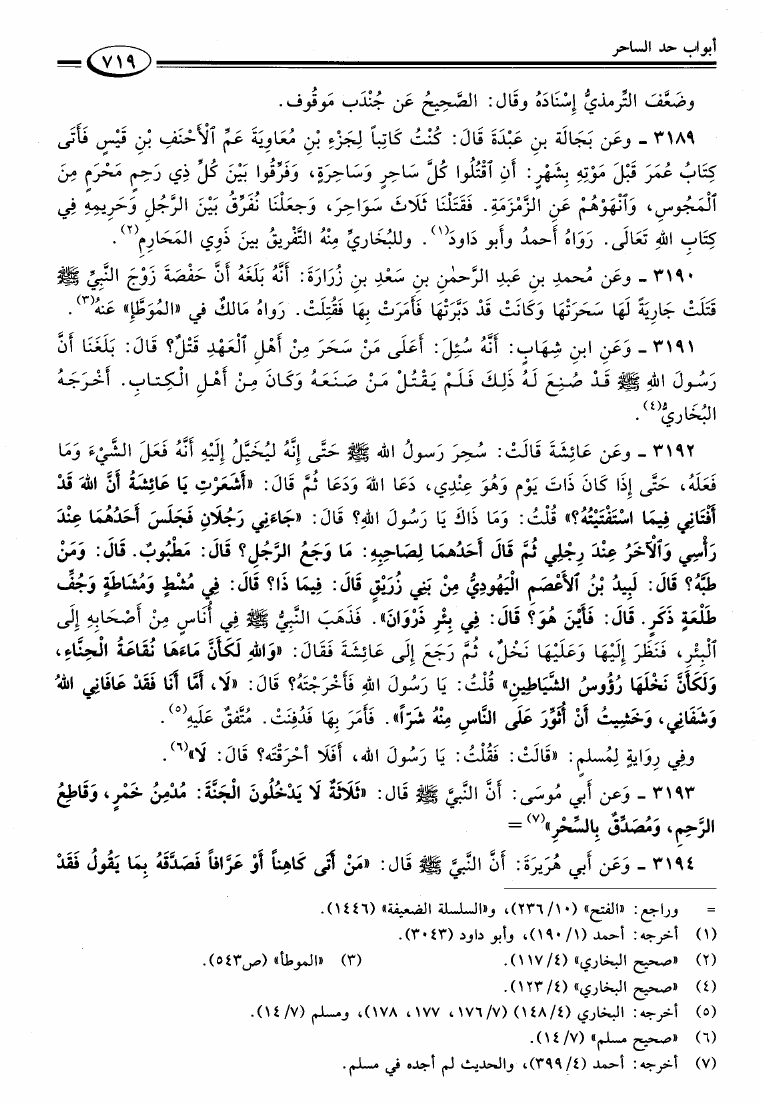 أبواب حد الساحر
٧١٩
وضَعَّفَ التِّرمذيُّ إِسْنَادَهُ وقَال: الصَّحِيحُ عَن جُنْدَب مَوقُوف.
٣١٨٩ ـ وعَن بَجَالَة بنِ عَبْدَةَ قَالَ: كُنْتُ كَاتِباً لِجَزْءِ بْنِ مُعَاوِيَةَ عَمِّ ٱلْأَحْنَفِ بْنِ قَيْسٍ فَأَتَى
كِتَابُ عُمَرَ قَبْلَ مَوْتِهِ بِشَهْرٍ: أَنِ ٱقْتُلُوا كُلَّ سَاحِرٍ وَسَاحِرَةٍ، وَفَرِّقُوا بَيْنَ كُلِّ ذِي رَحِمٍ مَحْرَمٍ مِنَ
ٱلْمَجُوسِ، وَٱنْهَوْهُمْ عَنِ الزَّمْزَمَةِ. فَقَتَلْنَا ثَلَاثَ سَوَاحِرَ، وَجعَلْنَا نُفَرِّقُ بَيْنَ الرَّجُلِ وَحَرِيمِهِ فِي
كِتَابِ اللهِ تَعَالَى. رَوَاهُ أَحمدُ وأبو دَاودَ(١). وللبُخَاريِّ مِنْهُ التَّفْرِيقُ بينَ ذَوِي المَحَارِمِ(٢).
٣١٩٠ ـ وعَن مُحمدِ بنِ عَبدِ الرَّحمٰنِ بنِ سَعْدِ بنِ زُرَارَةَ: أَنَّهُ بَلَغَهُ أَنَّ حَفْصَةَ زَوْجَ النَّبِيِّ ﷺ
قَتَلَتْ جَارِيَةً لَهَا سَحَرَتْهَا وَكَانَتْ قَدْ دَبَّرَتْهَا فَأَمَرَتْ بِهَا فَقُتِلَتْ. رَواهُ مَالكٌ في «المُوَطَّإِ» عَنهُ(٣).
٣١٩١ ـ وَعَنِ ابنِ شِهَابٍ: أَنَّهُ سُئِلَ: أَعَلَى مَنْ سَحَرَ مِنْ أَهْلِ ٱلْعَهْدِ قَتْلٌ؟ قَالَ: بَلَغَنَا أَنَّ
رَسُولَ اللهِ ﷺ قَدْ صُنِعَ لَهُ ذَلِكَ فَلَمْ يَقْتُلْ مَنْ صَنَعَهُ وَكَانَ مِنْ أَهْلِ الْكِتَابِ. أَخْرَجَهُ
البُخَاريُّ(٤).
٣١٩٢ ـ وعَن عَائِشَةَ قَالَتْ: سُحِرَ رَسولُ الله ﷺ حَتَّى إِنَّهُ لَيُخَيَّلُ إِلَيْهِ أَنَّهُ فَعَلَ الشَّيْءَ وَمَا
فَعَلَهُ، حَتَّى إِذَا كَانَ ذَاتَ يَوْمٍ وَهُوَ عِنْدِي، دَعَا اللهَ وَدَعَا ثُمَّ قَالَ: «أَشَعَرْتِ يَا عَائِشَةُ أَنَّ اللهَ قَدْ
أَفْتَانِي فِيمَا اسْتَفْتَيْتُهُ؟» قُلْتُ: وَمَا ذَاكَ يَا رَسُولَ اللهِ؟ قَالَ: «جَاءَنِي رَجُلَانِ فَجَلَسَ أَحَدُهُمَا عِنْدَ
رَأْسِي وَٱلْآخَرُ عِنْدَ رِجْلِي ثُمَّ قَالَ أَحَدُهُمَا لِصَاحِبِهِ: مَا وَجَعُ الرَّجُلِ؟ قَالَ: مَطْبُوبٌ. قَالَ: وَمَنْ
طَبَّهُ؟ قَالَ: لَبِيدُ بْنُ الأَعْصَمِ الْيَهُودِيُّ مِنْ بَنِي زُرَيْقٍ قَالَ: فِيمَا ذَا؟ قَالَ: فِي مُشْطٍ وَمُشَاطَةٍ وَجُفِّ
طَلْعَةٍ ذَكَرٍ. قَالَ: فَأَيْنَ هُوَ؟ قَالَ: فِي بِئْرِ ذَرْوَانَ». فَذَهَبَ النَّبِيُّ ﷺ فِي أُنَاسٍ مِنْ أَصْحَابِهِ إِلَى
ٱلْبِئْرِ، فَنَظَرَ إِلَيْهَا وَعَلَيْهَا نَخْلٌ، ثُمَّ رَجَعَ إِلَى عَائِشَةَ فَقَالَ: «وَاللهِ لَكَأَنَّ مَاءَهَا نُقَاعَةُ الْحِنَّاءِ،
وَلَكَأَنَّ نَخْلَهَا رُؤُوسُ الشَّيَاطِينِ» قُلْتُ: يَا رَسُولَ اللهِ فَأَخْرَجْتَهُ؟ قَالَ: «لَا، أَمَّا أَنَا فَقَدْ عَافَانِي اللهُ
وَشَفَانِي، وَخَشِيتُ أَنْ أُثَوِّرَ عَلَى النَّاسِ مِنْهُ شَرّاً». فَأَمَرَ بِهَا فَدُفِنَتْ. مُتَّفقٌ عَلَيهِ(٥).
وفِي رِوَايةٍ لِمُسلمٍ: «قَالَتْ: فَقُلْتُ: يَا رَسُولَ الله، أَفَلَا أحرَقْته؟ قَالَ: لَا»(٦).
٣١٩٣ ـ وَعَن أبي مُوسَى: أَنَّ النَّبيَّ ﷺ قَال: «ثَلَاثَةٌ لَا يَدْخُلُونَ الْجَنَّةَ: مُدْمِنُ خَمْرٍ، وَقَاطِعُ
الرَّحِمِ، وَمُصَدِّقٌ بِالسِّحْرِ»(٧) =
٣١٩٤ ـ وَعَن أبي هُرَيرَةَ: أَنَّ النَّبيَّ ﷺ قَالَ: «مَنْ أَتَى كَاهِناً أَوْ عَرَّافاً فَصَدَّقَهُ بِمَا يَقُولُ فَقَدْ
= وراجع: «الفتح» (١٠/ ٢٣٦)، و«السلسلة الضعيفة» (١٤٤٦).
(١) أخرجه: أحمد (١/ ١٩٠)، وأبو داود (٣٠٤٣).
(٢) «صحيح البخاري» (٤/ ١١٧). (٣) «الموطأ» (ص٥٤٣).
(٤) «صحيح البخاري» (٤/ ١٢٣).
(٥) أخرجه: البخاري (٤/ ١٤٨) (٧/ ١٧٦، ١٧٧، ١٧٨)، ومسلم (٧/ ١٤).
(٦) «صحيح مسلم» (٧/ ١٤).
(٧) أخرجه: أحمد (٤/ ٣٩٩)، والحديث لم أجده في مسلم.